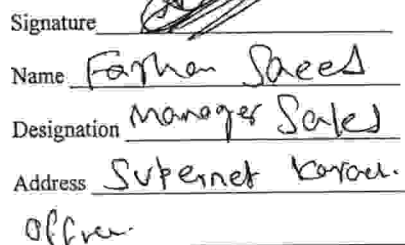 Signature
Name Farhan Saeed
Designation Manager Sales
Address Supernet
office